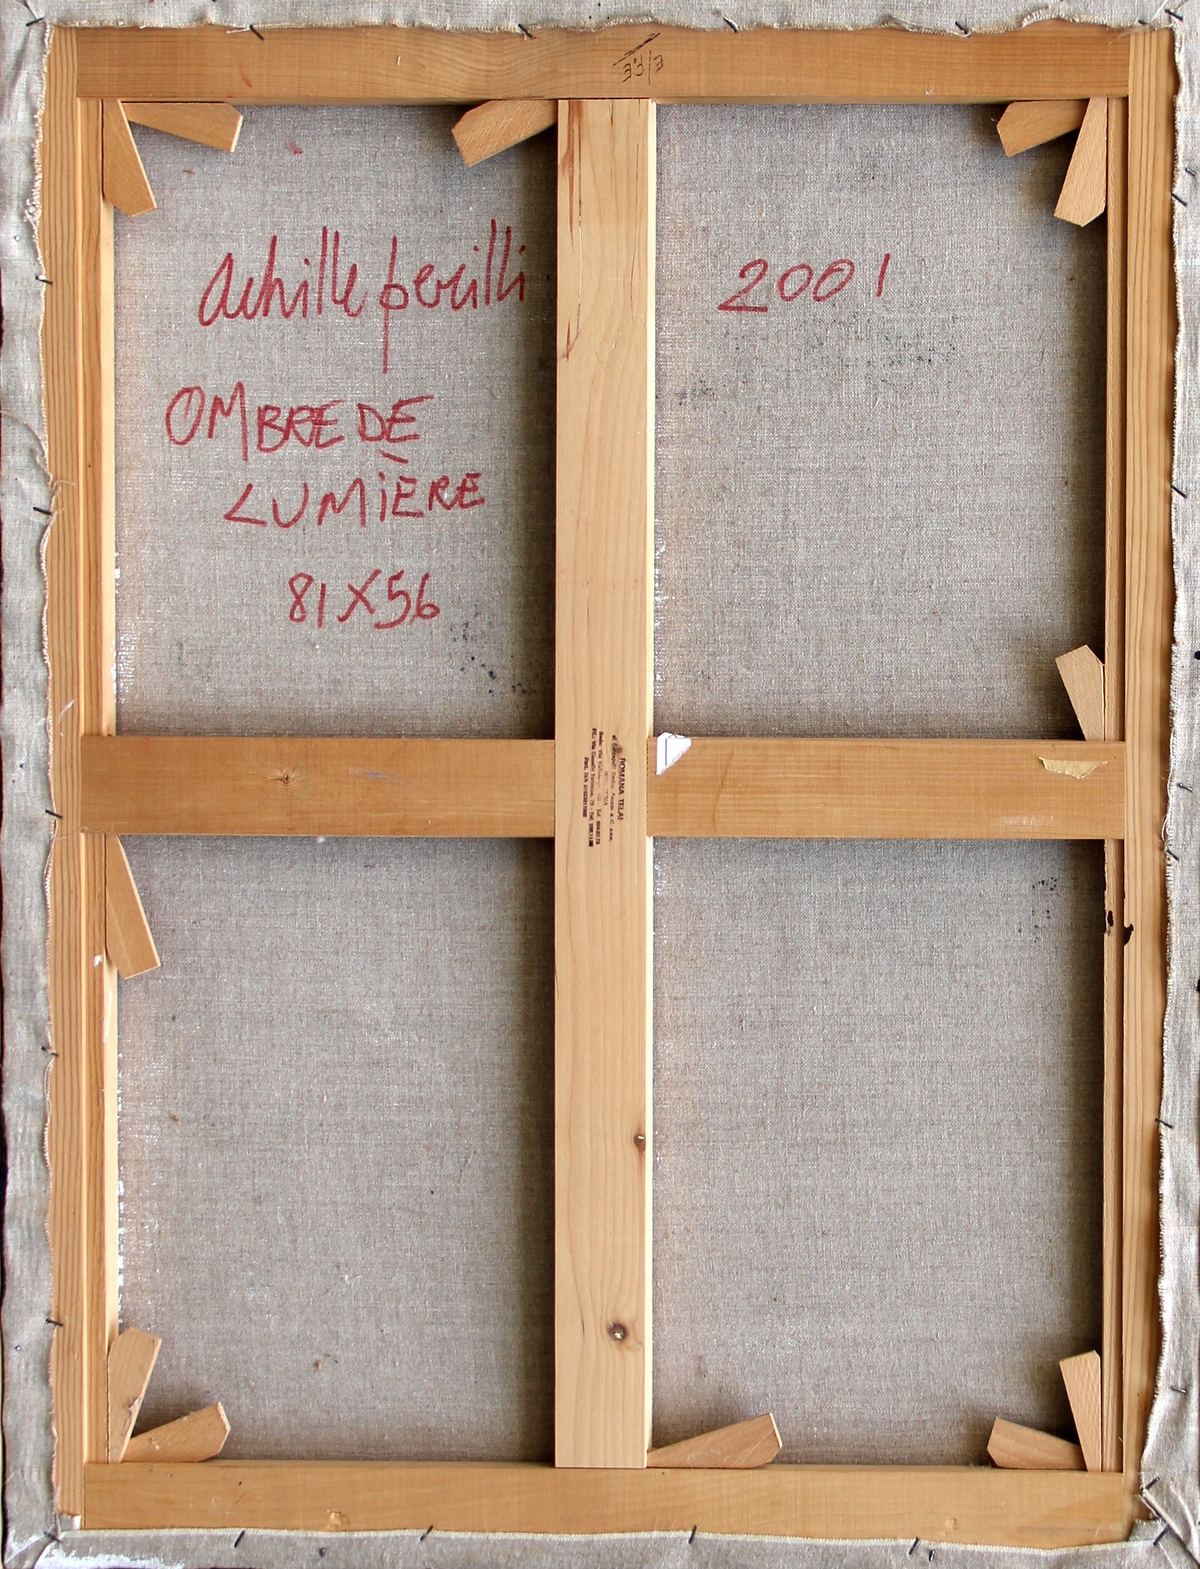 achille perilli
2001
OMBRE DE
LUMIÈRE
81X56
ROMANA TELAI